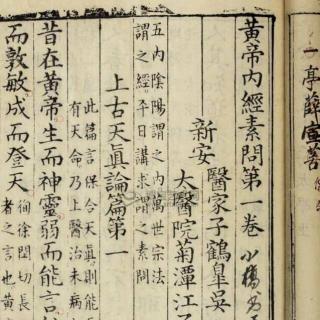 一亭薛
黃帝內經素問第一卷
新安
醫家子鶴皋吳
太醫院菊潭江子
五內陰陽謂之內萬世宗法
謂之經平日講求謂之問
上古天眞論篇第一
此篇言保合天眞則能
有天命乃上醫治未病
昔在黃帝生而神靈弱而能言
而敦敏成而登天
徇徐閏切長
者之言也黃